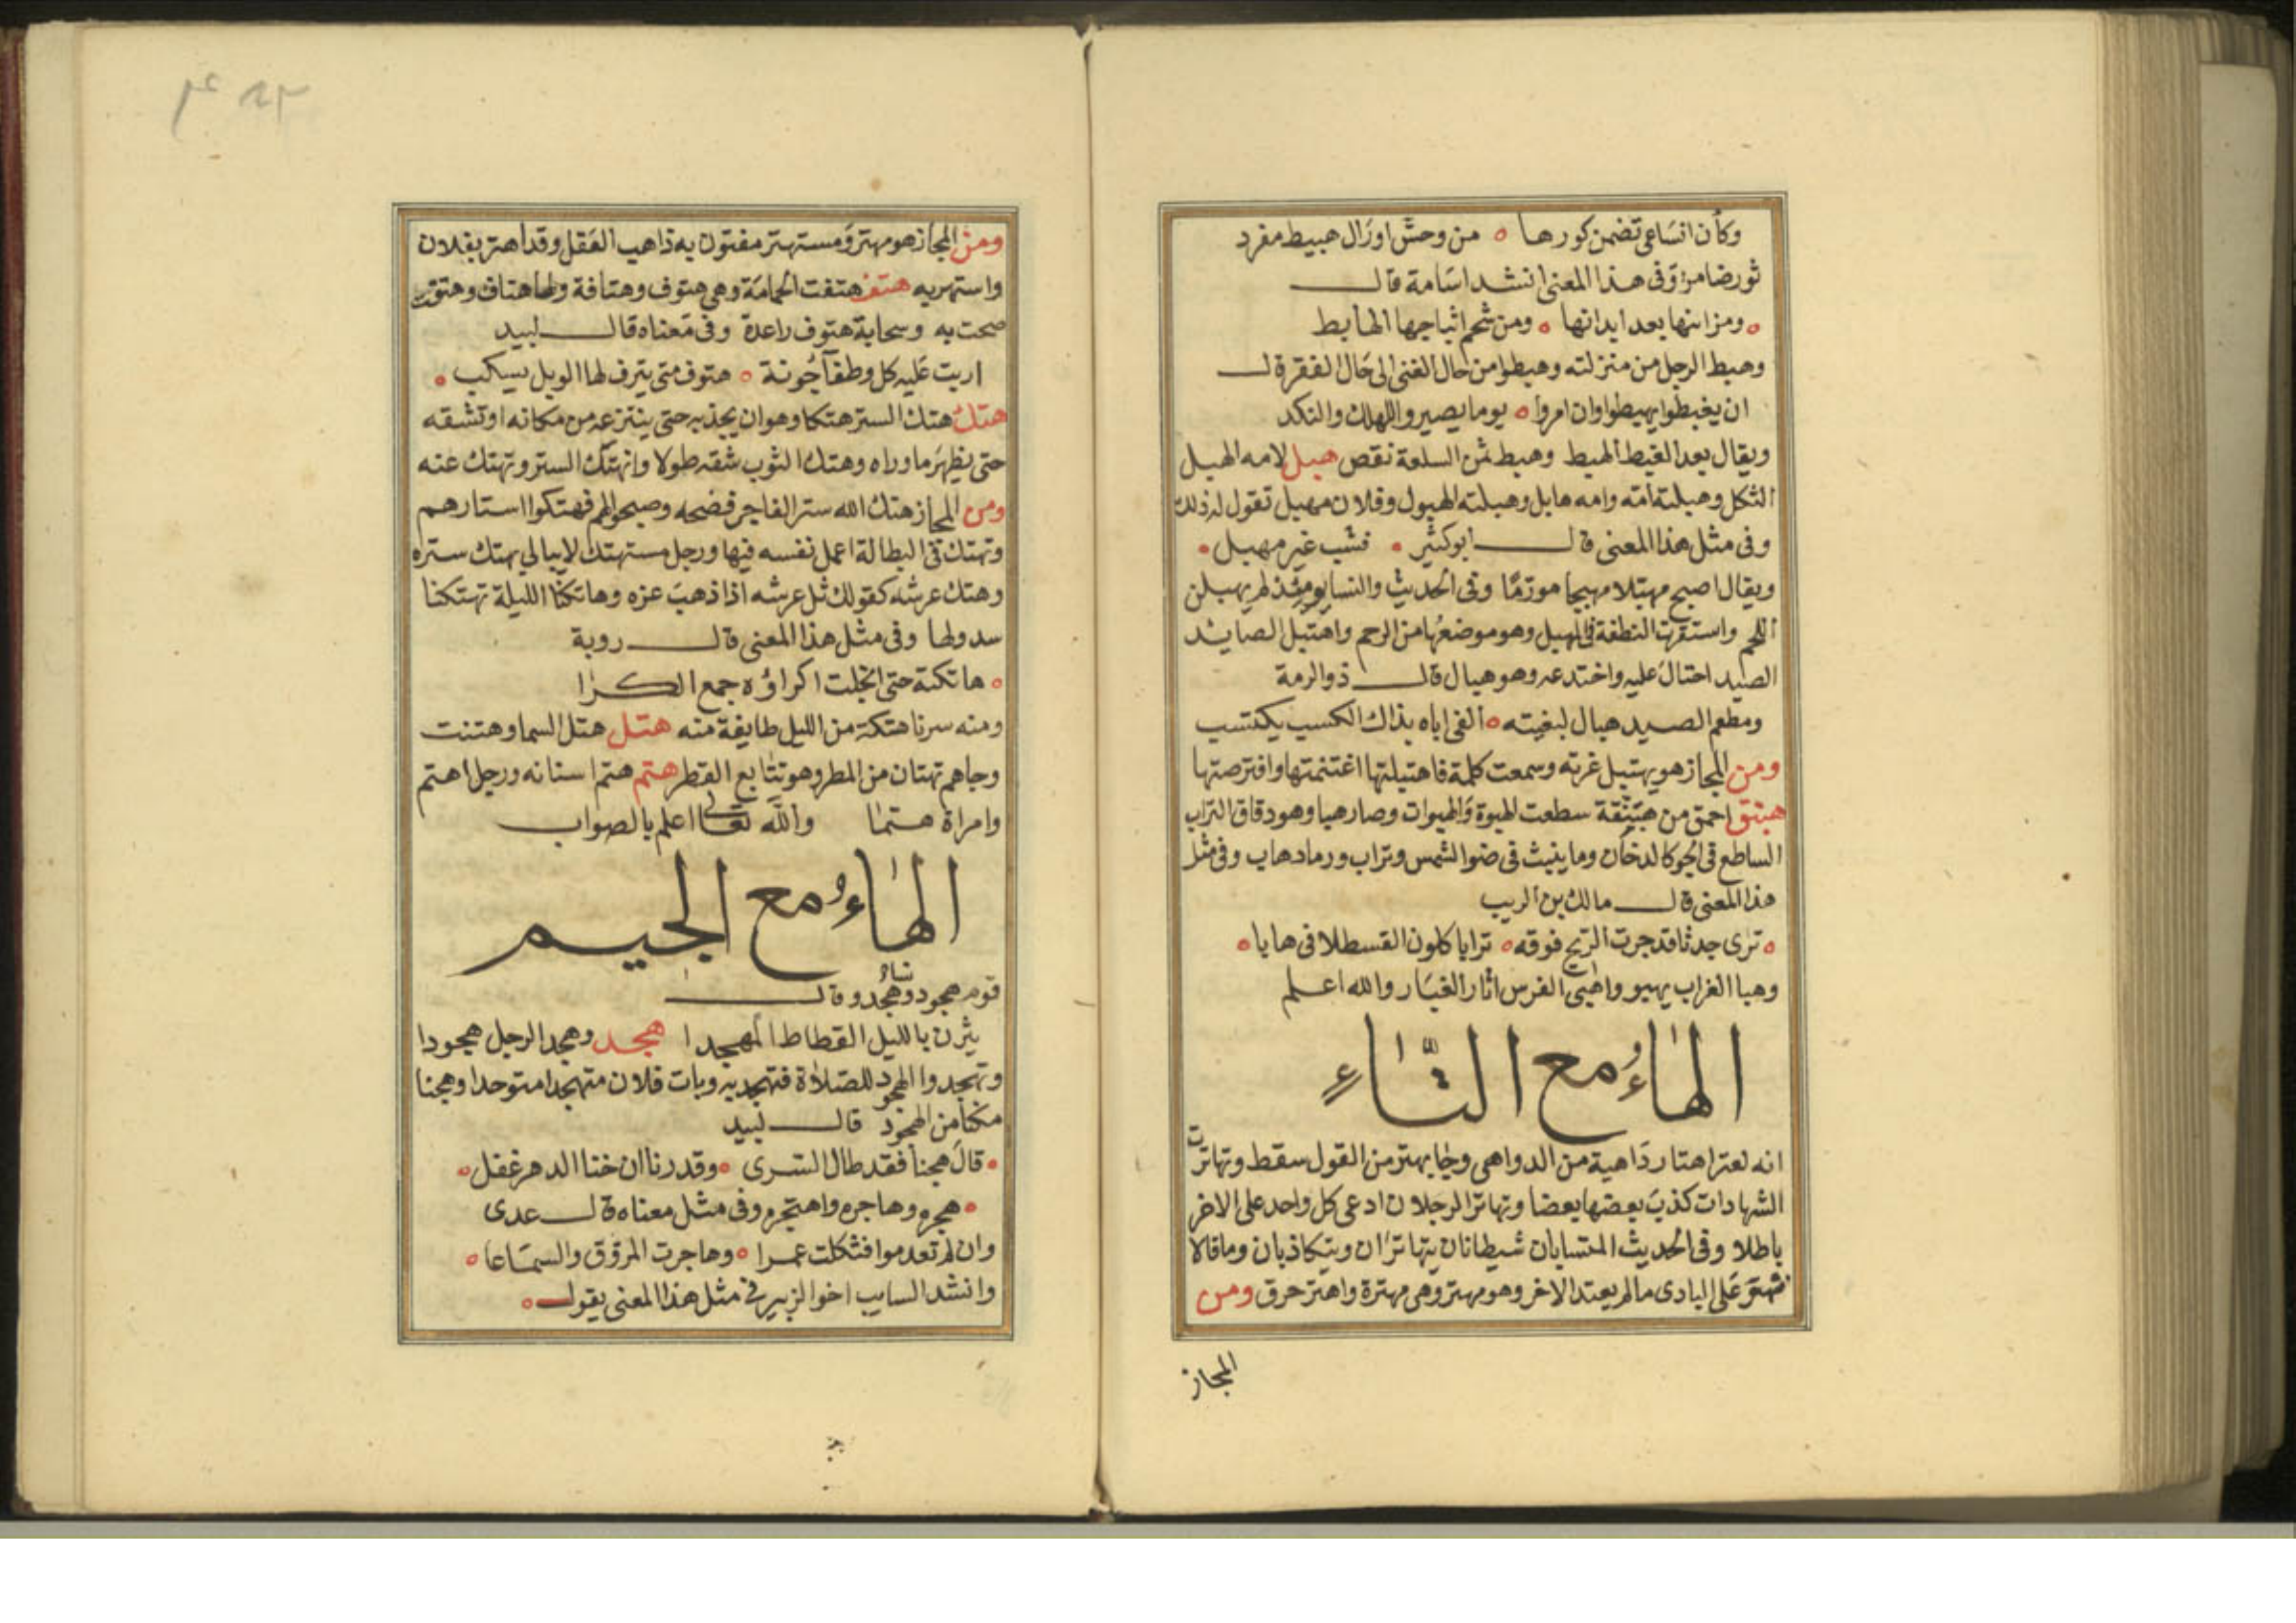 وكأن انساعى تضمن كورها ه من وحش اورال هبيط مفرد
ثور ضامر وفى هذا المعنى انشد اسامة قال
ه ومن اينها بعد ابدانها ه ومن شحم اثباجها الهابط
وهبط الرجل من منزلته وهبطوا من حال الغنى الى حال الفقر قال
ان يغبطوا يهبطوا وان امروا ه يوما يصيروا للهلك والنكد
ويقال بعد الغبط الهبط وهبط ثمن السلعة نقص هبل لامه الهبل
الثكل وهبلته امه وامه هابل وهبلته الهبول وفلان مهبل تقول له ذلك
وفى مثل هذا المعنى قال ابو كثير ه فشب غير مهبل ه
ويقال اصبح مهبلا مهبجا مورما وفى الحديث والنسا يومئذ لم يهبلن
اللحم واستقرت النطفة فى المهبل وهو موضعها من الرحم واهتبل الصايد
الصيد احتال عليه واختدعه وهو هبال قال ذو الرمة
ومطعم الصيد هبال لبغيته ه الفى اباه بذاك الكسب يكتسب
ومن المجاز هو يهتبل غرته وسمعت كلمة فاهتبلتها اغتنمتها وافترصتها
هبنق احمق من هبنقة سطعت الهبوة والهبوات وصار هبا وهو دقاق التراب
الساطع فى الجو كالدخان وما ينبث فى ضوا الشمس وتراب ورماد هاب وفى مثل
هذا المعنى قال مالك بن الريب
ه ترى جدثا قد جرت الريح فوقه ه ترابا كلون القسطلا فى هابا ه
وهبا الغراب يهبو واهبى الفرس اثار الغبار والله اعلم
الهاء مع التاء
انه لعتر اهتار داهية من الدواهى وجا بهتر من القول سقط وتهاترت
الشهادات كذب بعضها بعضا وتهاتر الرجلان ادعى كل واحد على الاخر
باطلا وفى الحديث المتسابان شيطانان يتهاتران ويتكاذبان وما قالا
فهو على البادى ما لم يعتد الاخر وهو مهتر وهى مهترة واهتر حرق ومن
المجاز
ومن المجاز هو مهتر ومستهتر مفتون به ذاهب العقل وقد اهتر بفلان
واستهتر به هتف هتفت الحمامة وهى هتوف وهتافة ولها هتاف وهتفت
صحت به وسحابة هتوف راعدة وفى معناه قال لبيد
اربت عليه كل وطفآ جونة ه هتوف متى يترف لها الوبل يسكب ه
هتك هتك الستر هتكا وهو ان يجذبه حتى ينتزعه من مكانه او تشقه
حتى يظهر ما وراه وهتك الثوب شقه طولا وانهتك الستر وتهتك عنه
ومن المجاز هتك الله ستر الفاجر فضحه وصبحوهم فهتكوا استارهم
وتهتك فى البطالة اعمل نفسه فيها ورجل مستهتك لا يبالى بهتك ستره
وهتك عرشه كقولك ثل عرشه اذا ذهب عزه وهاتكنا الليلة تهتكنا
سدولها وفى مثل هذا المعنى قال روبة
ه هاتكته حتى انجلت اكراؤه جمع الكرا
ومنه سرنا هتكة من الليل طايفة منه هتل هتل السما وهتنت
وجاهم تهتان من المطر وهو تتابع القطر هتم هتم اسنانه ورجل اهتم
وامراة هتما والله تعالى اعلم بالصواب
الهاء مع الجيم
قوم هجود وهجد وقال
يثرن بالليل القطاط الهجدا هجد وهجد الرجل هجودا
وتهجدوا الهجود للصلاة فتهجد به وبات فلان متهجدا متوحدا وهجنا
مكنا من الهجود قال لبيد
ه قال هجنا فقد طال السرى ه وقدرنا ان خنا الدهر غفل ه
ه هجره وهاجره واهتجره وفى مثل معناه قال عدى
وان لم تعدموا فثكلت عمرا ه وهاجرت المروق والسماعا ه
وانشد السايب اخوا الزبير فى مثل هذا المعنى يقول ه